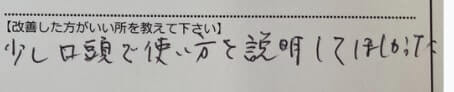 【改善した方がいい所を教えて下さい】
少し口頭で使い方を説明してほしかった